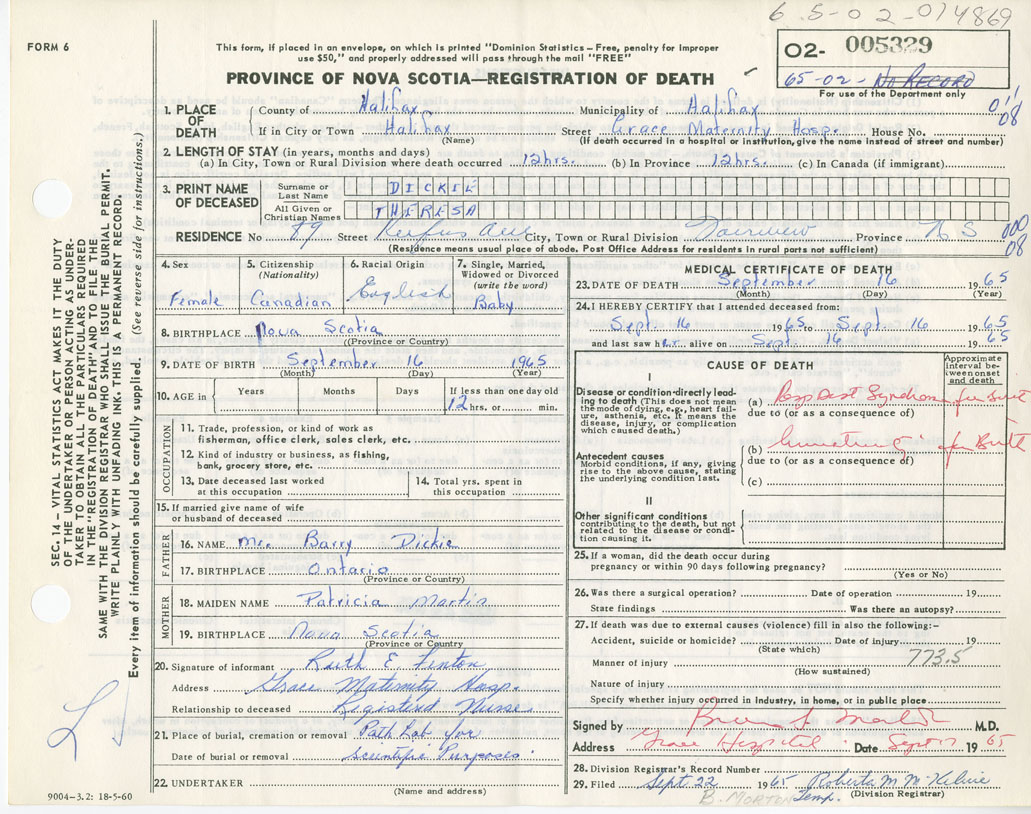 6 5-0 2-014869
FORM 6
This form, if placed in an envelope, on which is printed "Dominion Statistics-Free, penalty for improper
use $50," and properly addressed will pass through the mail "FREE"
O2- 005329
PROVINCE OF NOVA SCOTIA—REGISTRATION OF DEATH
65-02- No RECORD
For use of the Department only
011
08
1. PLACE OF DEATH
County of Halifax Municipality of Halifax
If in City or Town Halifax Street Grace Maternity Hosp. House No.
(Name) (If death occurred in a hospital or institution, give the name instead of street and number)
2. LENGTH OF STAY (in years, months and days)
(a) In City, Town or Rural Division where death occurred 12hrs. (b) In Province 12hrs. (c) In Canada (if immigrant)
3. PRINT NAME OF DECEASED
Surname or Last Name DICKIE
All Given or Christian Names THERESA
RESIDENCE No 89 Street Rufus Ave City, Town or Rural Division Fairview Province N S
000
08
(Residence means usual place of abode. Post Office Address for residents in rural parts not sufficient)
4. Sex
Female
5. Citizenship
(Nationality)
Canadian
6. Racial Origin
English
7. Single, Married,
Widowed or Divorced
(write the word)
Baby
8. BIRTHPLACE Nova Scotia
(Province or Country)
9. DATE OF BIRTH September 16 1965
(Month) (Day) (Year)
10. AGE in Years Months Days If less than one day old
12 hrs. or min.
OCCUPATION
11. Trade, profession or kind of work as
fisherman, office clerk, sales clerk, etc.
12. Kind of industry or business, as fishing,
bank, grocery store, etc.
13. Date deceased last worked
at this occupation
14. Total yrs. spent in
this occupation
15. If married give name of wife
or husband of deceased
FATHER
16. NAME Mr. Barry Dickie
17. BIRTHPLACE Ontario
(Province or Country)
MOTHER
18. MAIDEN NAME Patricia Martin
19. BIRTHPLACE Nova Scotia
(Province or Country)
20. Signature of informant Ruth E Fenton
Address Grace Maternity Hosp.
Relationship to deceased Registered Nurse
21. Place of burial, cremation or removal Path Lab for
Date of burial or removal scientific Purposes
22. UNDERTAKER
(Name and address)
MEDICAL CERTIFICATE OF DEATH
23. DATE OF DEATH September 16 1965
(Month) (Day) (Year)
24. I HEREBY CERTIFY that I attended deceased from:
Sept. 16 1965 to Sept. 16 1965
and last saw her alive on Sept. 16 1965
CAUSE OF DEATH
Approximate
interval be-
tween onset
and death
I
Disease or condition directly lead-
ing to death (This does not mean
the mode of dying, e.g., heart fail-
ure, asthenia, etc. It means the
disease, injury, or complication
which caused death.)
(a) Resp Dist Syndrome
due to (or as a consequence of)
Antecedent causes
Morbid conditions, if any, giving
rise to the above cause, stating
the underlying condition last.
(b)
due to (or as a consequence of)
(c)
II
Other significant conditions
contributing to the death, but not
related to the disease or condi-
tion causing it.
25. If a woman, did the death occur during
pregnancy or within 90 days following pregnancy?
(Yes or No)
26. Was there a surgical operation? Date of operation 19
State findings Was there an autopsy?
27. If death was due to external causes (violence) fill in also the following:-
Accident, suicide or homicide? Date of injury 19
(State which)
773.5
Manner of injury
(How sustained)
Nature of injury
Specify whether injury occurred in industry, in home, or in public place
Signed by M.D.
Address Grace Hospital Date Sept 17 1965
28. Division Registrar's Record Number
29. Filed Sept 22 1965 Roberta M McKelvie
B. MORTON Temp. (Division Registrar)
9004-3.2: 18-5-60
SEC. 14 – VITAL STATISTICS ACT MAKES IT THE DUTY
OF THE UNDERTAKER OR PERSON ACTING AS UNDER-
TAKER TO OBTAIN ALL THE PARTICULARS REQUIRED
IN THE "REGISTRATION OF DEATH" AND TO FILE THE
SAME WITH THE DIVISION REGISTRAR WHO SHALL ISSUE THE BURIAL PERMIT.
WRITE PLAINLY WITH UNFADING INK. THIS IS A PERMANENT RECORD.
Every item of information should be carefully supplied. (See reverse side for instructions.)